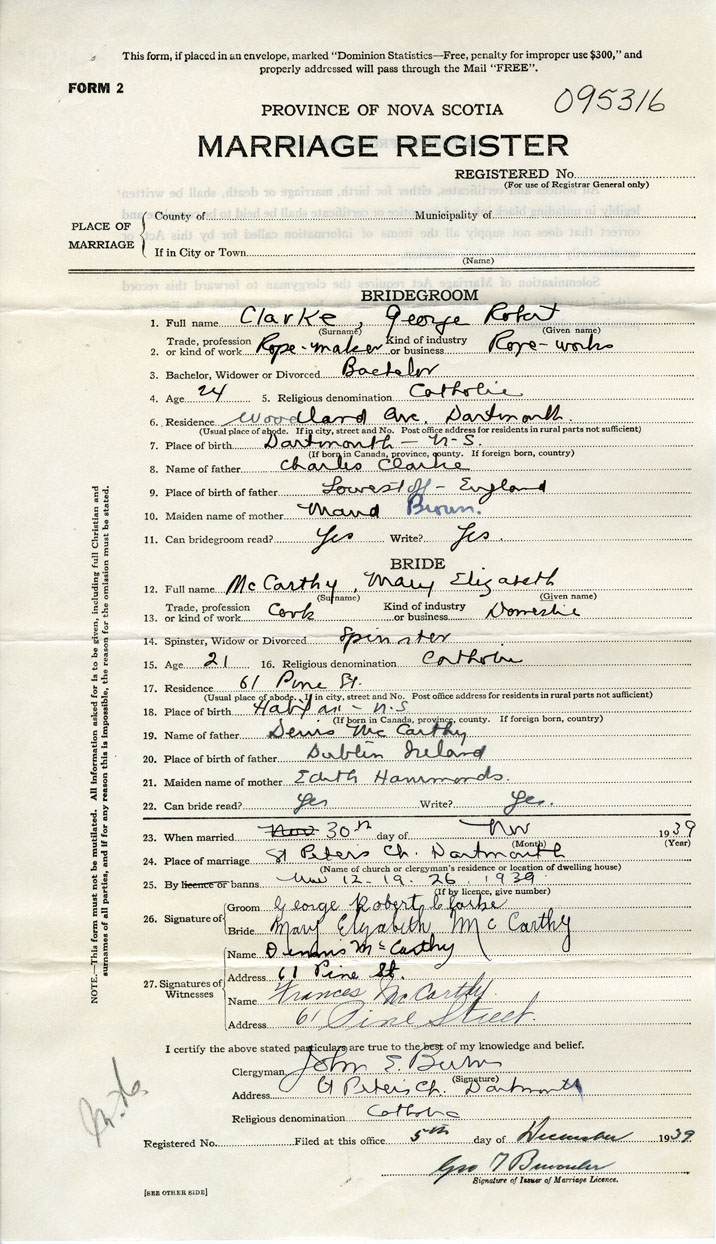 This form, if placed in an envelope, marked "Dominion Statistics—Free, penalty for improper use $300," and
properly addressed will pass through the Mail "FREE".
FORM 2
095316
PROVINCE OF NOVA SCOTIA
MARRIAGE REGISTER
REGISTERED No.
(For use of Registrar General only)
PLACE OF MARRIAGE
County of Municipality of
If in City or Town
(Name)
BRIDEGROOM
1. Full name Clarke, George Robert
(Surname) (Given name)
2. Trade, profession or kind of work Rope-maker Kind of industry or business Rope-works
3. Bachelor, Widower or Divorced Bachelor
4. Age 24 5. Religious denomination Catholic
6. Residence Woodland Ave. Dartmouth.
(Usual place of abode. If in city, street and No. Post office address for residents in rural parts not sufficient)
7. Place of birth Dartmouth - N-S.
(If born in Canada, province, county. If foreign born, country)
8. Name of father Charles Clarke
9. Place of birth of father Lowestoff - England
10. Maiden name of mother Maud Brown.
11. Can bridegroom read? Yes Write? Yes.
BRIDE
12. Full name McCarthy, Mary Elizabeth
(Surname) (Given name)
13. Trade, profession or kind of work Cook Kind of industry or business Domestic
14. Spinster, Widow or Divorced Spinster
15. Age 21 16. Religious denomination Catholic
17. Residence 61 Pine St.
(Usual place of abode. If in city, street and No. Post office address for residents in rural parts not sufficient)
18. Place of birth Halifax - N-S
(If born in Canada, province, county. If foreign born, country)
19. Name of father Denis McCarthy
20. Place of birth of father Dublin Ireland
21. Maiden name of mother Edith Hammonds.
22. Can bride read? Yes Write? Yes.
23. When married Nov 30th day of Nov 1939
(Month) (Year)
24. Place of marriage St Peters Ch. Dartmouth
(Name of church or clergyman's residence or location of dwelling house)
25. By licence or banns Nov 12. 19. 26. 1939
(If by licence, give number)
26. Signature of
Groom George Robert Clarke
Bride Mary Elizabeth McCarthy
27. Signatures of Witnesses
Name Dennis McCarthy
Address 61 Pine St.
Name Frances McCarthy
Address 61 Pine Street.
I certify the above stated particulars are true to the best of my knowledge and belief.
Clergyman John E. Burns
(Signature)
Address St Peters Ch. Dartmouth
Religious denomination Catholic
Registered No. Filed at this office 5th day of December 1939
Geo
Signature of Issuer of Marriage Licence.
[SEE OTHER SIDE]
NOTE.—This form must not be mutilated. All information asked for is to be given, including full Christian and
surnames of all parties, and if for any reason this is impossible, the reason for the omission must be stated.